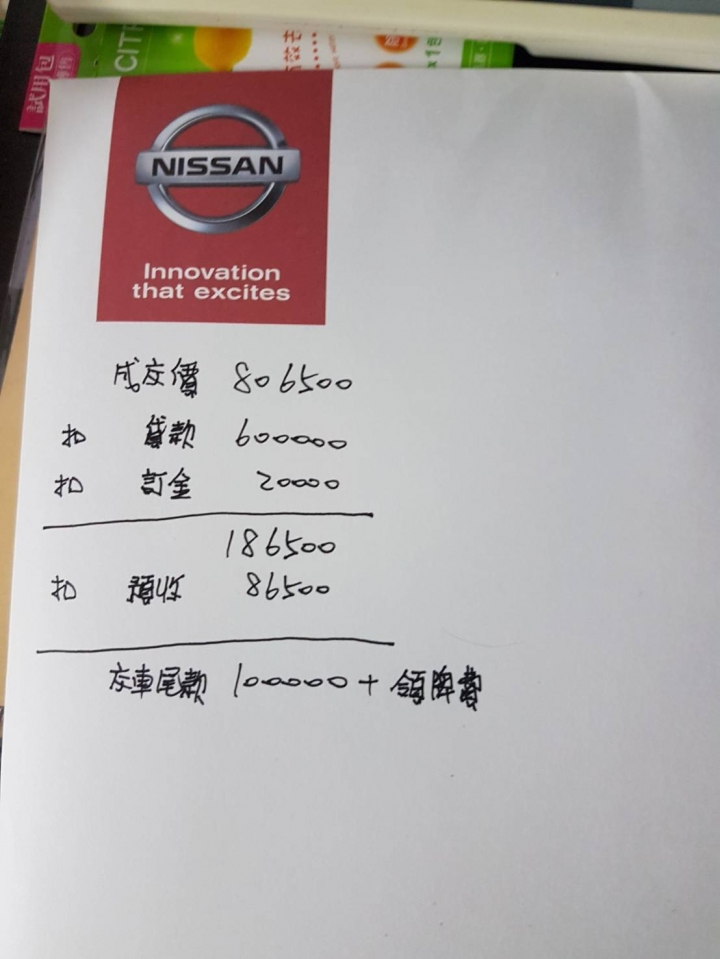 試用包
CITR
×1包
NISSAN
Innovation
that excites
成交價 806500
扣 貸款 600000
扣 訂金 20000
186500
扣 預收 86500
交車尾款 100000 + 領牌費